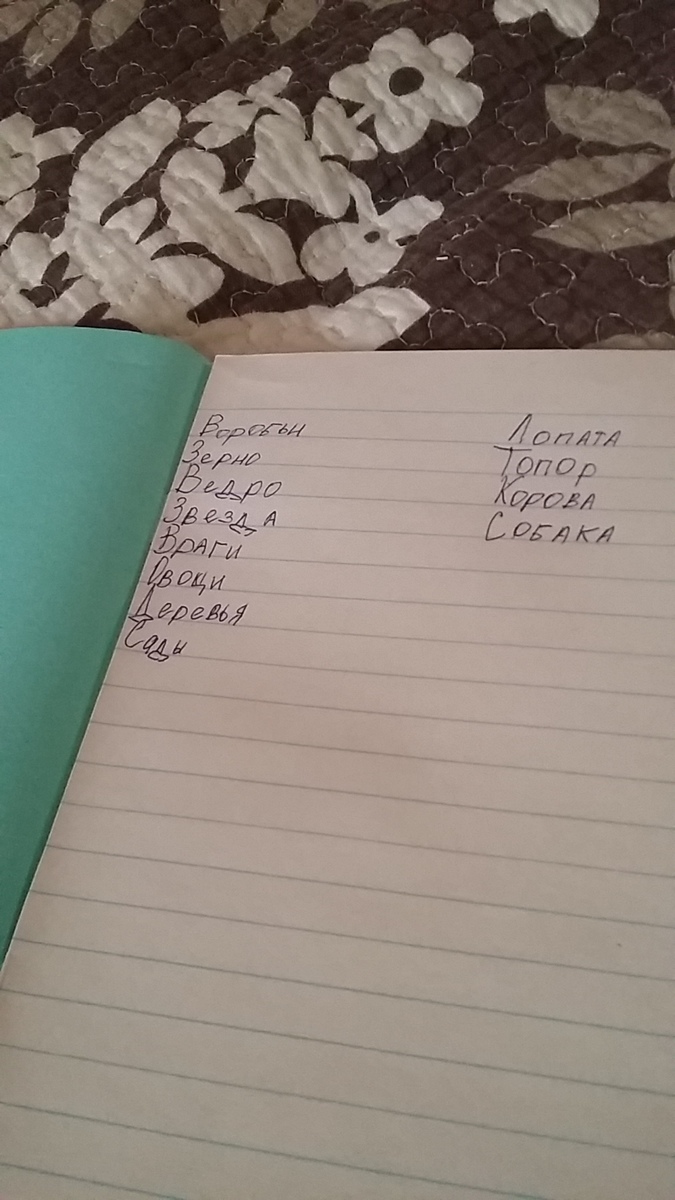 Воробьи
Зерно
Ведро
Звезда
Враги
Овощи
Деревья
Сады
Лопата
Топор
Корова
Собака